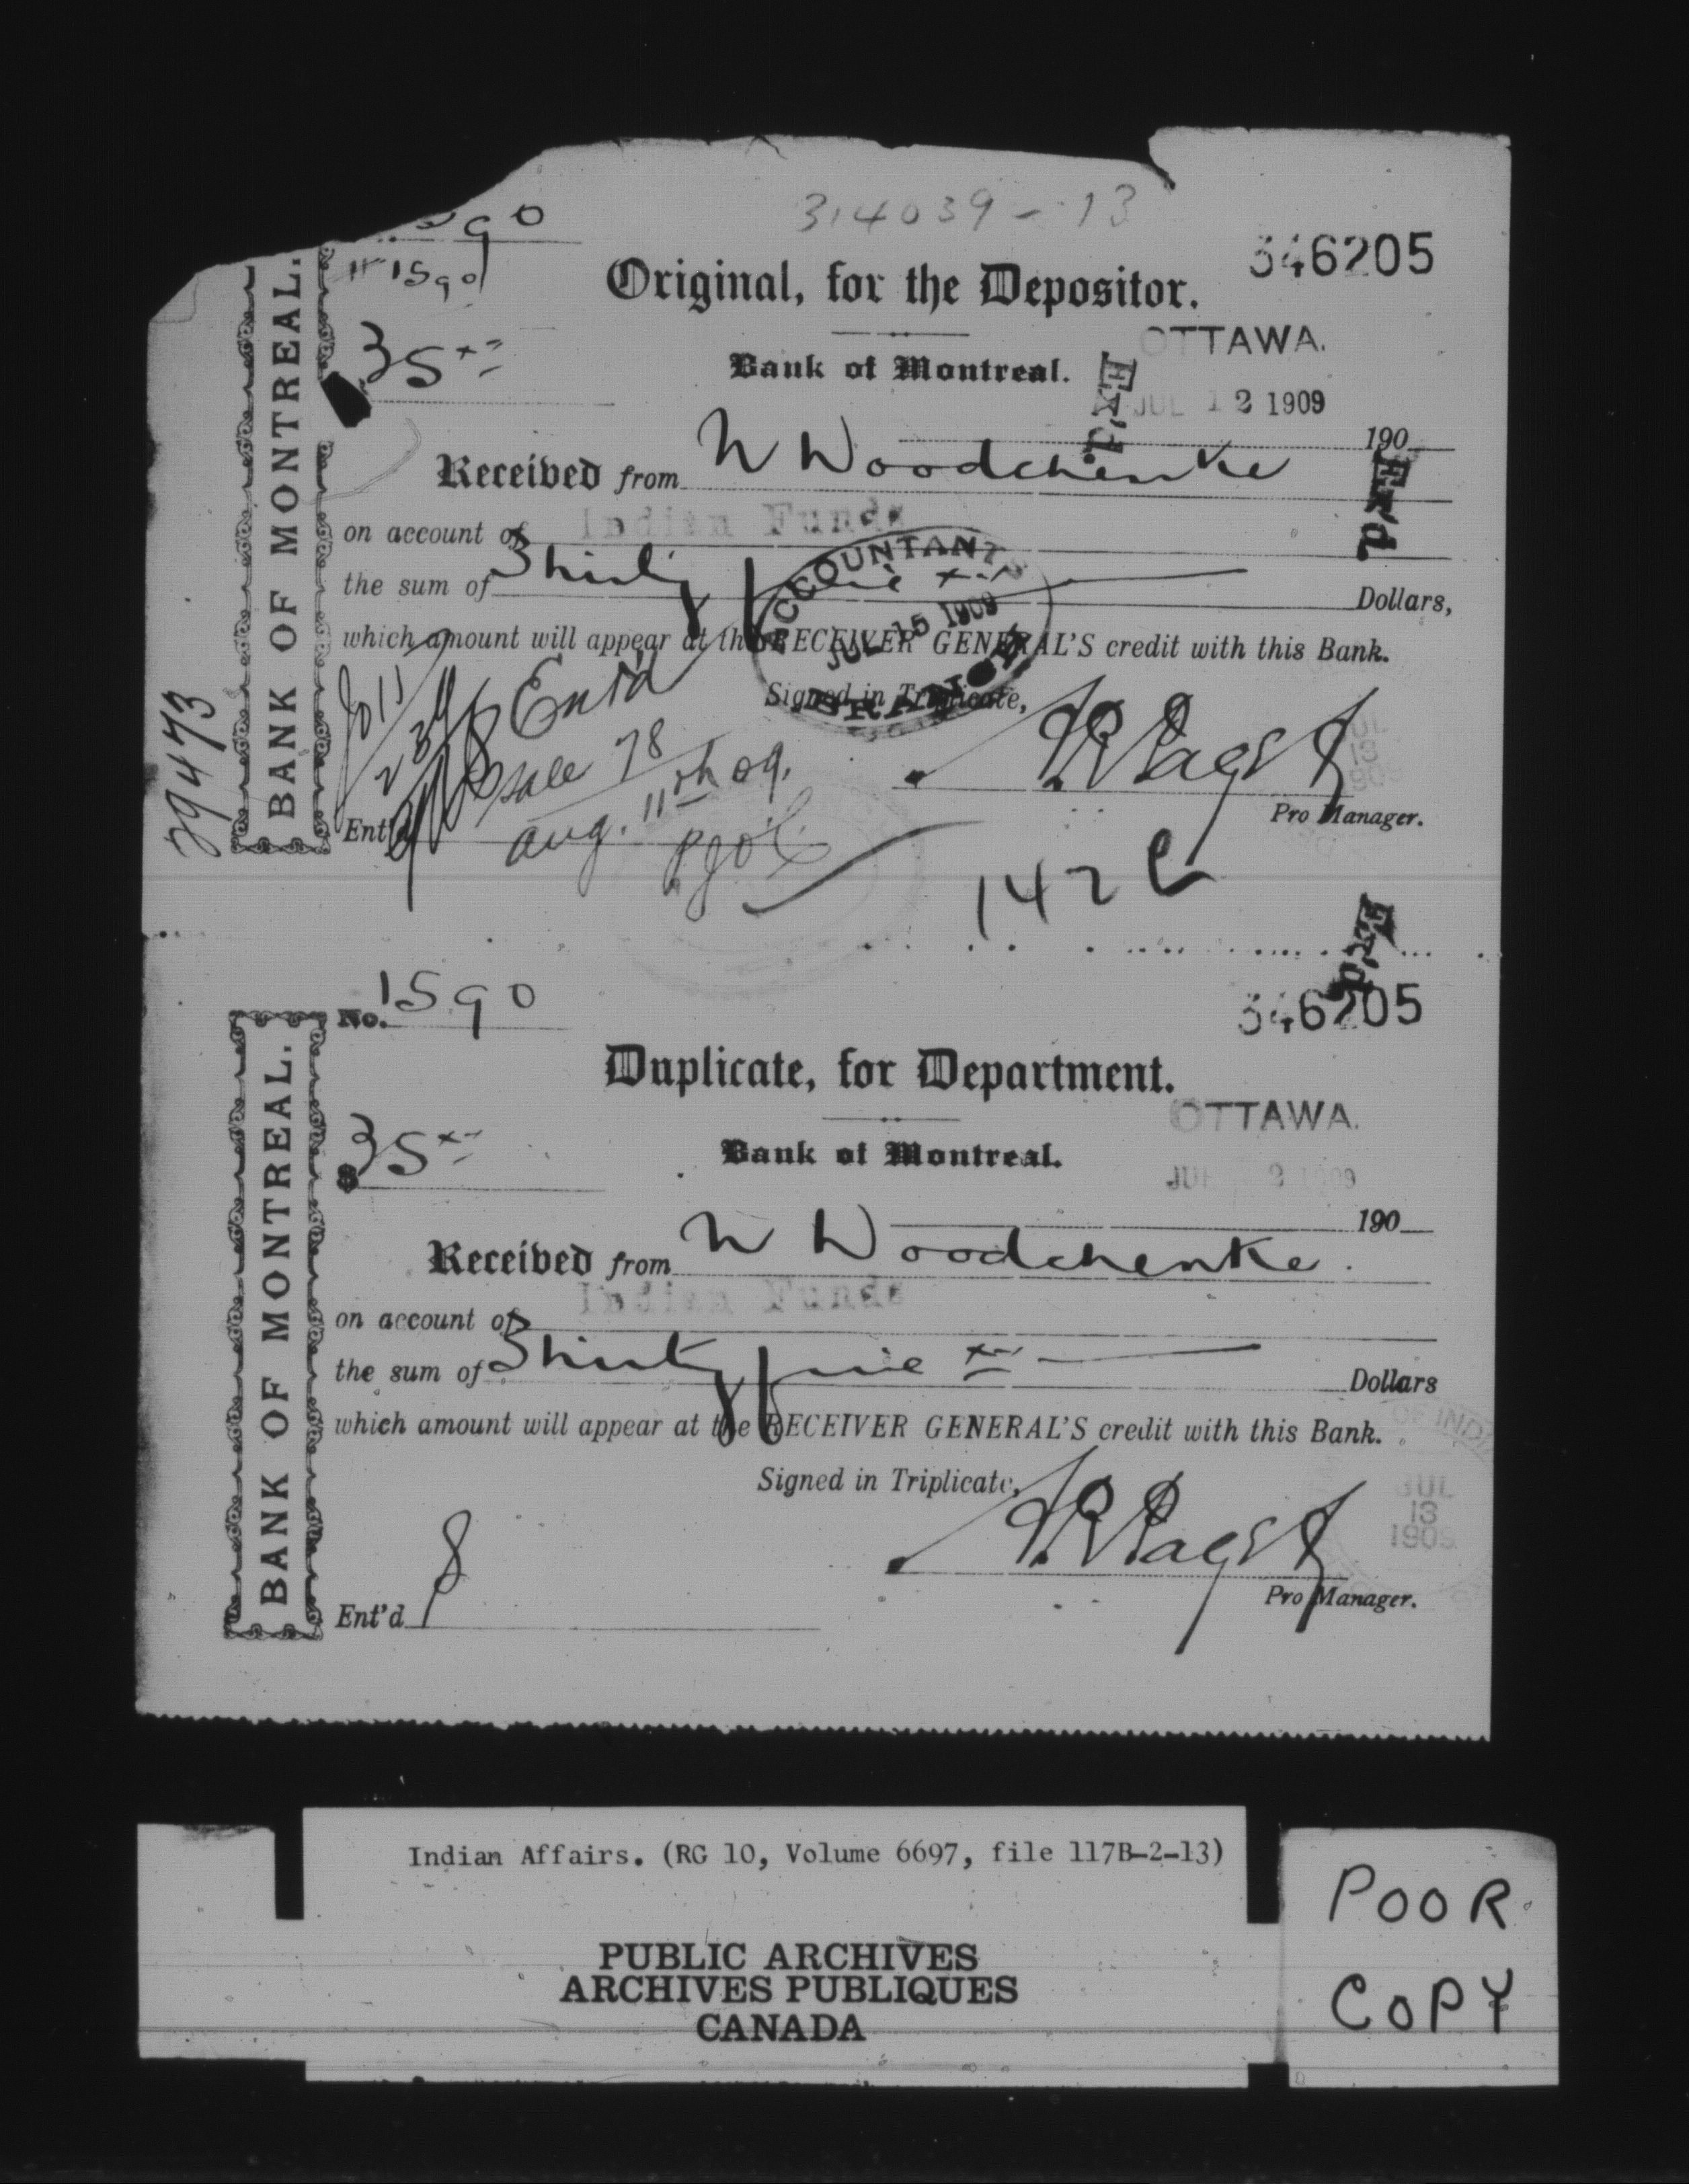 314039 - 13
1590
346205
Original, for the Depositor.
OTTAWA.
35 xx
Bank of Montreal.
Ex'd.
JUL 12 1909
190
Received from W Woodchenke
Ex'd.
on account of Indian Funds
the sum of Thirty five xx Dollars,
ACCOUNTANT'S
JUL 15 1909
BRANCH
which amount will appear at the RECEIVER GENERAL'S credit with this Bank.
Signed in Triplicate,
Ent'd
Sale 78
Aug. 11th 09.
JUL
13
190
Pro Manager.
Ent'd
29473
BANK OF MONTREAL.
142
Ex'd.
No. 1590
346205
Duplicate, for Department.
OTTAWA.
$35 xx
Bank of Montreal.
JUL 2 1909
190
Received from W Woodchenke.
on account of Indian Funds
the sum of Thirty five xx Dollars
which amount will appear at the RECEIVER GENERAL'S credit with this Bank.
Signed in Triplicate,
OF INDI
JUL
13
1909
Pro Manager.
Ent'd
BANK OF MONTREAL.
Indian Affairs. (RG 10, Volume 6697, file 117B-2-13)
PUBLIC ARCHIVES
ARCHIVES PUBLIQUES
CANADA
POOR
COPY